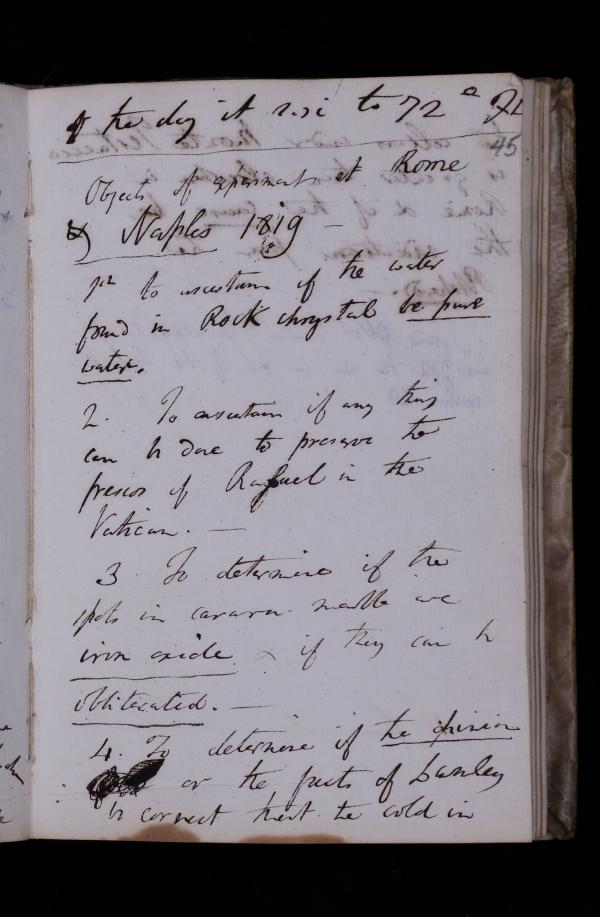 of the day it rose to 72°
45
Objects of experiments at Rome
& Naples 1819 –
1st to ascertain if the water
found in Rock chrystal be pure
water.
2. To ascertain if any thing
can be done to preserve the
frescos of Rafael in the
Vatican. —
3 To determine if the
spots in carara marble are
iron oxide & if they can be
obliterated. —
4. To determine if the opinion
or the facts of
be correct that the cold in